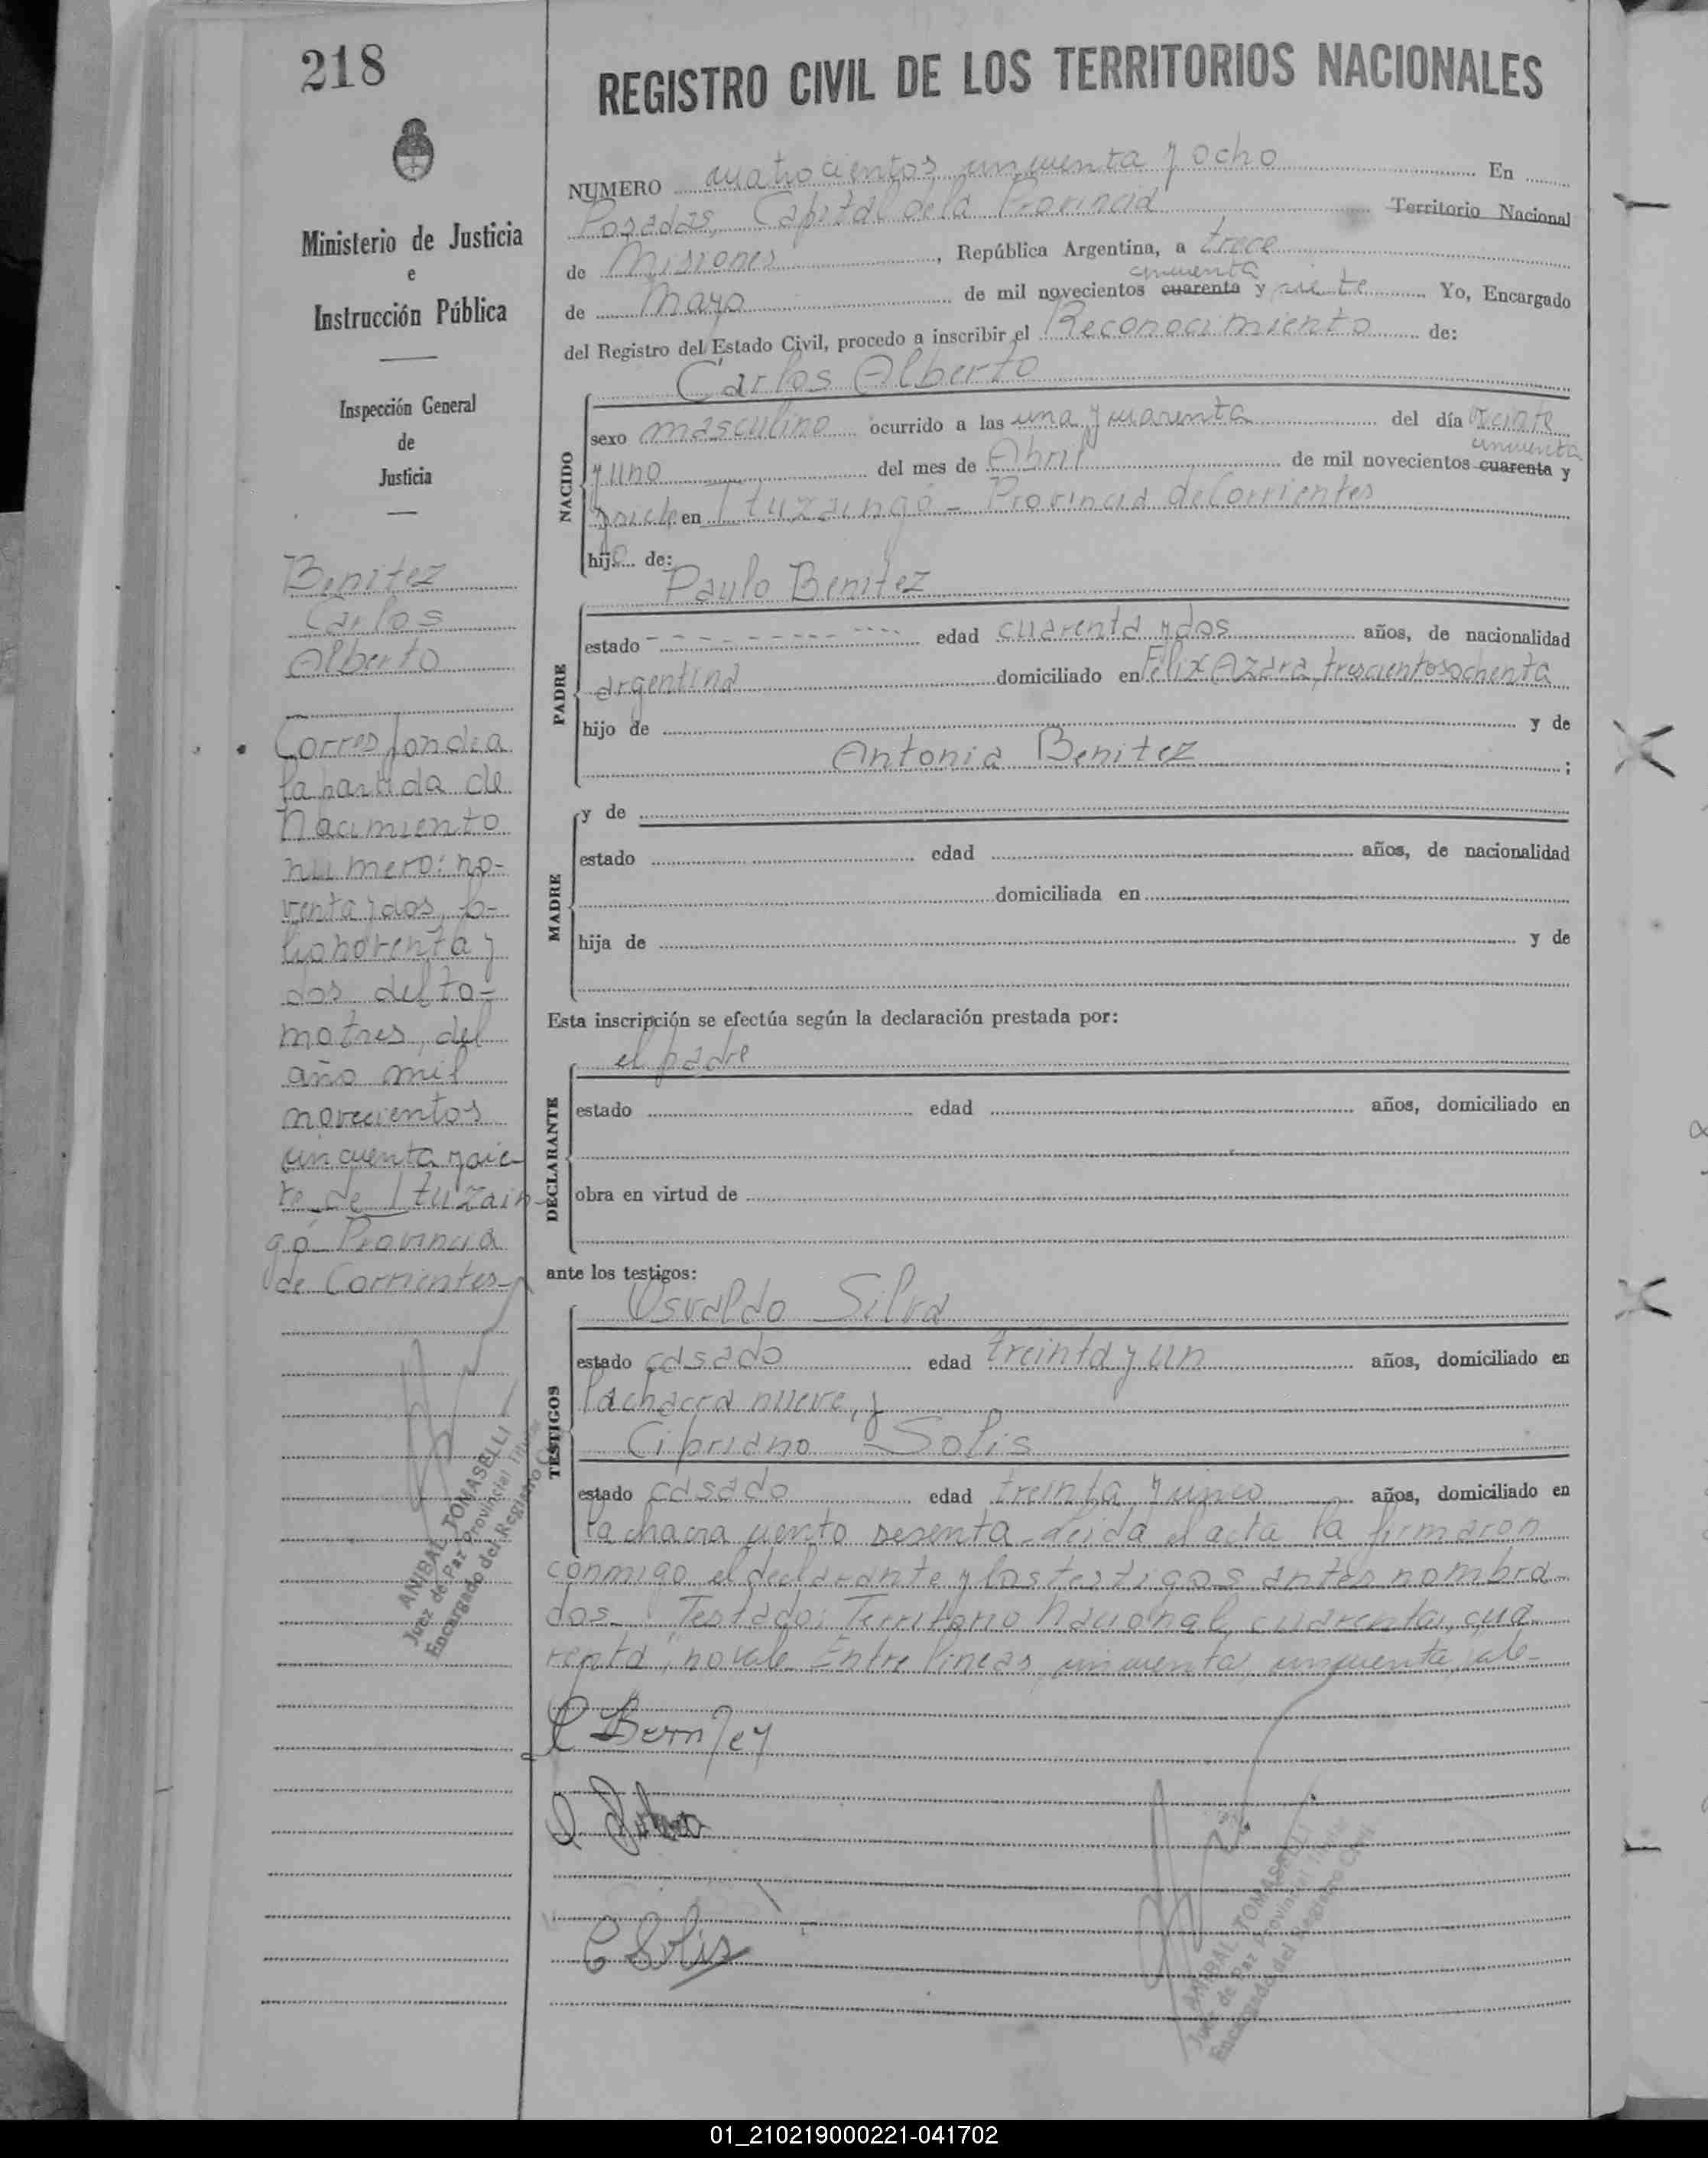 218
Ministerio de Justicia
e
Instrucción Pública
Inspección General
de
Justicia
Benitez
Carlos
Alberto
Corresponde a
la partida de
Nacimiento
numero: no-
venta y dos, fo-
lio noventa y
dos del to-
mo tres, del
año mil
novecientos
cincuenta y sie-
te de Ituzain-
gó Provincia
de Corrientes
ANIBAL TOMASELLI
Juez de Paz Provincial Titular
Encargado del Registro Civil
REGISTRO CIVIL DE LOS TERRITORIOS NACIONALES
NUMERO cuatrocientos cincuenta y ocho En
Posadas, Capital de la Provincia Territorio Nacional
de Misiones, República Argentina, a trece
cincuenta
de Mayo de mil novecientos cuarenta y siete Yo, Encargado
del Registro del Estado Civil, procedo a inscribir el Reconocimiento de:
Carlos Alberto
NACIDO
sexo masculino ocurrido a las una y cuarenta del día veinte
cincuenta
y uno del mes de Abril de mil novecientos cuarenta y
siete en Ituzaingó - Provincia de Corrientes
hijo de:
Paulo Benitez
PADRE
estado - - - - - - - - - - edad cuarenta y dos años, de nacionalidad
argentina domiciliado en Felix Azara, trescientos ochenta
hijo de y de
Antonia Benitez ;
MADRE
y de
estado edad años, de nacionalidad
domiciliada en
hija de y de
Esta inscripción se efectúa según la declaración prestada por:
el padre
DECLARANTE
estado edad años, domiciliado en
obra en virtud de
ante los testigos:
Osvaldo Silva
TESTIGOS
estado casado edad treinta y un años, domiciliado en
la chacra nueve, y
Cipriano Solis
estado casado edad treinta y cinco años, domiciliado en
la chacra ciento sesenta - Leida el acta la firmaron
conmigo el declarante y los testigos antes nombra-
dos - Testado: Territorio Nacional, cuarenta, cua-
renta, no vale. Entre lineas, cincuenta, cincuenta, vale-
C Solis
ANIBAL TOMASELLI
Juez de Paz Provincial Titular
Encargado del Registro Civil
01_210219000221-041702